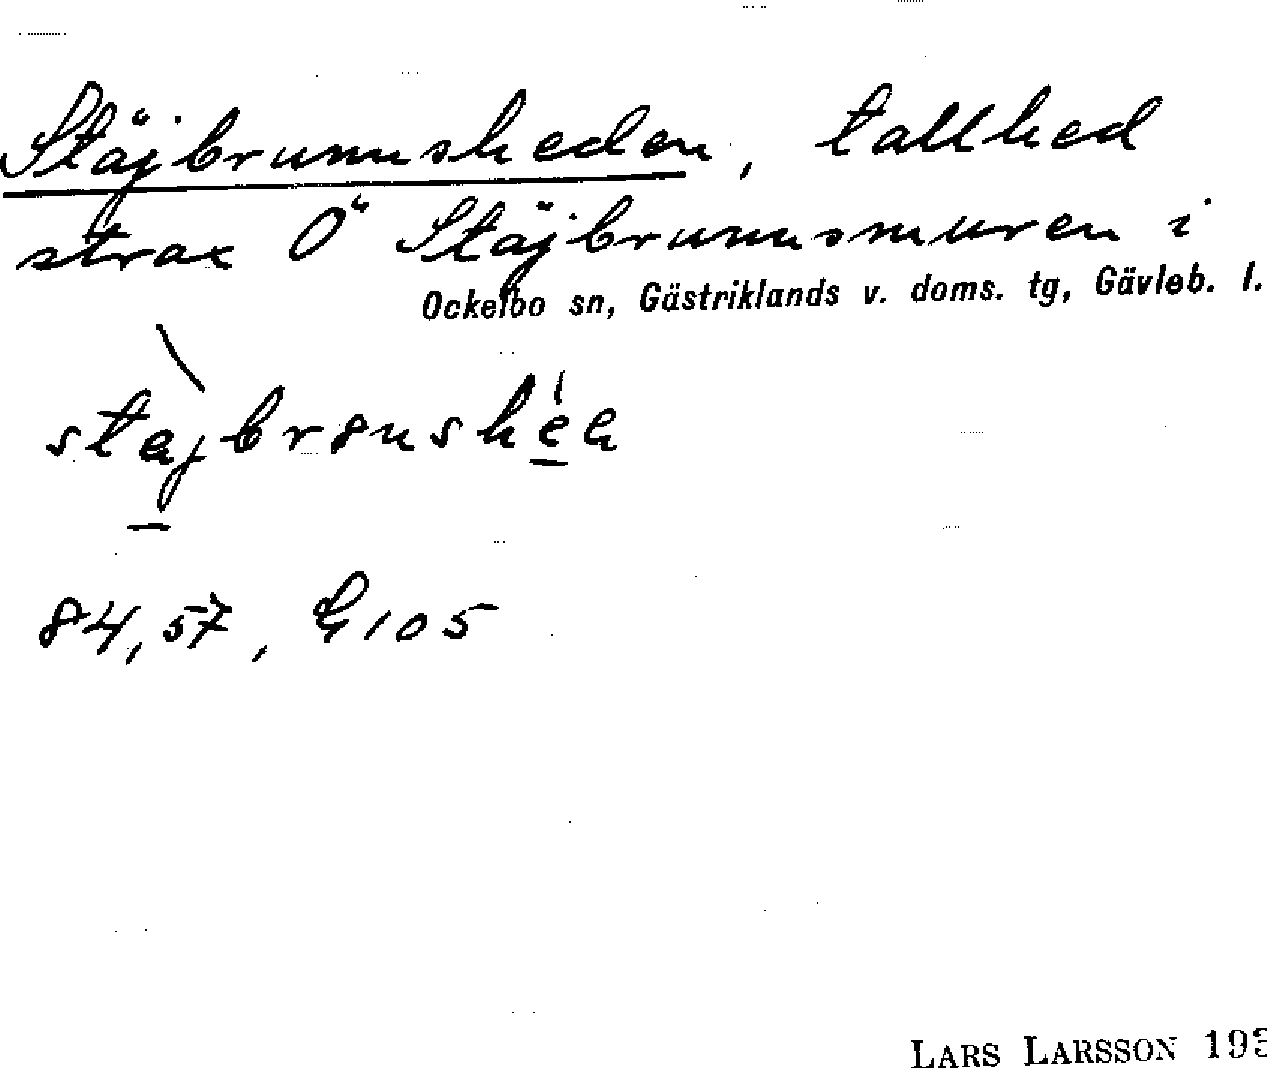 Stäjbrunnsheden, tallhed
strax Ö Stäjbrunnsmuren i
Ockelbo sn, Gästriklands v. doms. tg, Gävleb. l.
84,57, G105
LARS LARSSON 193